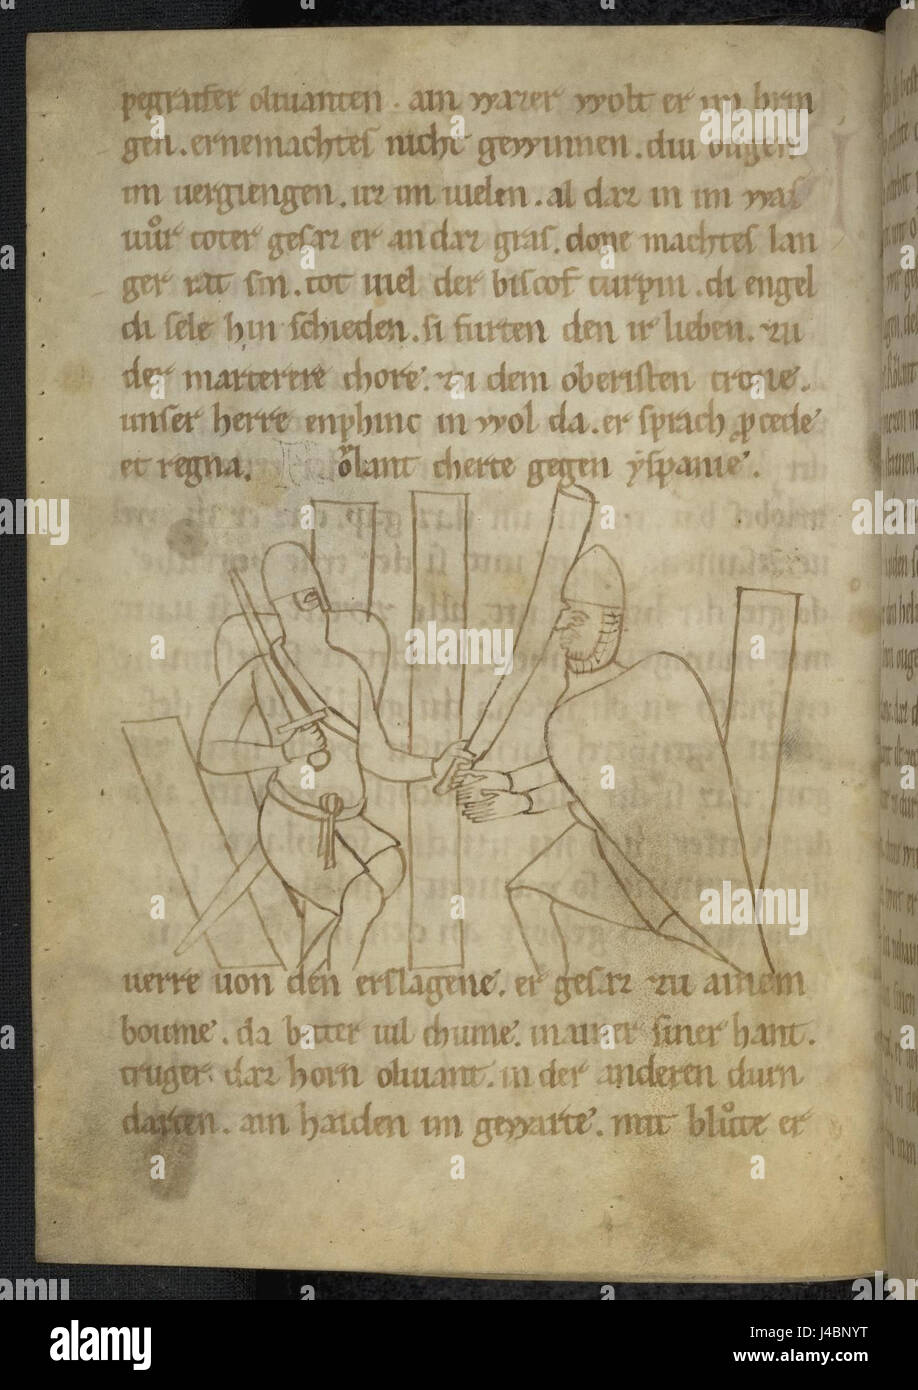 pegraifer oliuanten . ain wazer wolt er im brin
gen . ernemachtes nicht gewinnen . diu ougen
im uergiengen . uz im uielen . al daz in im was
uůr toter gesaz er an daz gras . done machtes lan
ger rat sin . tot uiel der biscof turpin . di engel
di sele hin schieden . si furten den ir lieben . zu
der marterere chore . zu dem oberisten trone .
unser herre enphinc in wol da . er sprach ꝓcede
et regna . Růlant cherte gegen yspanie .
uerre uon den erslagene . er gesaz zu ainem
boume . da baiter uil chume . in ainer siner hant .
truger daz horn oliuant . in der anderen durn
darten . ain haiden im gewarte . mit blůte er
alamy
Image ID: J4BNYT
www.alamy.com